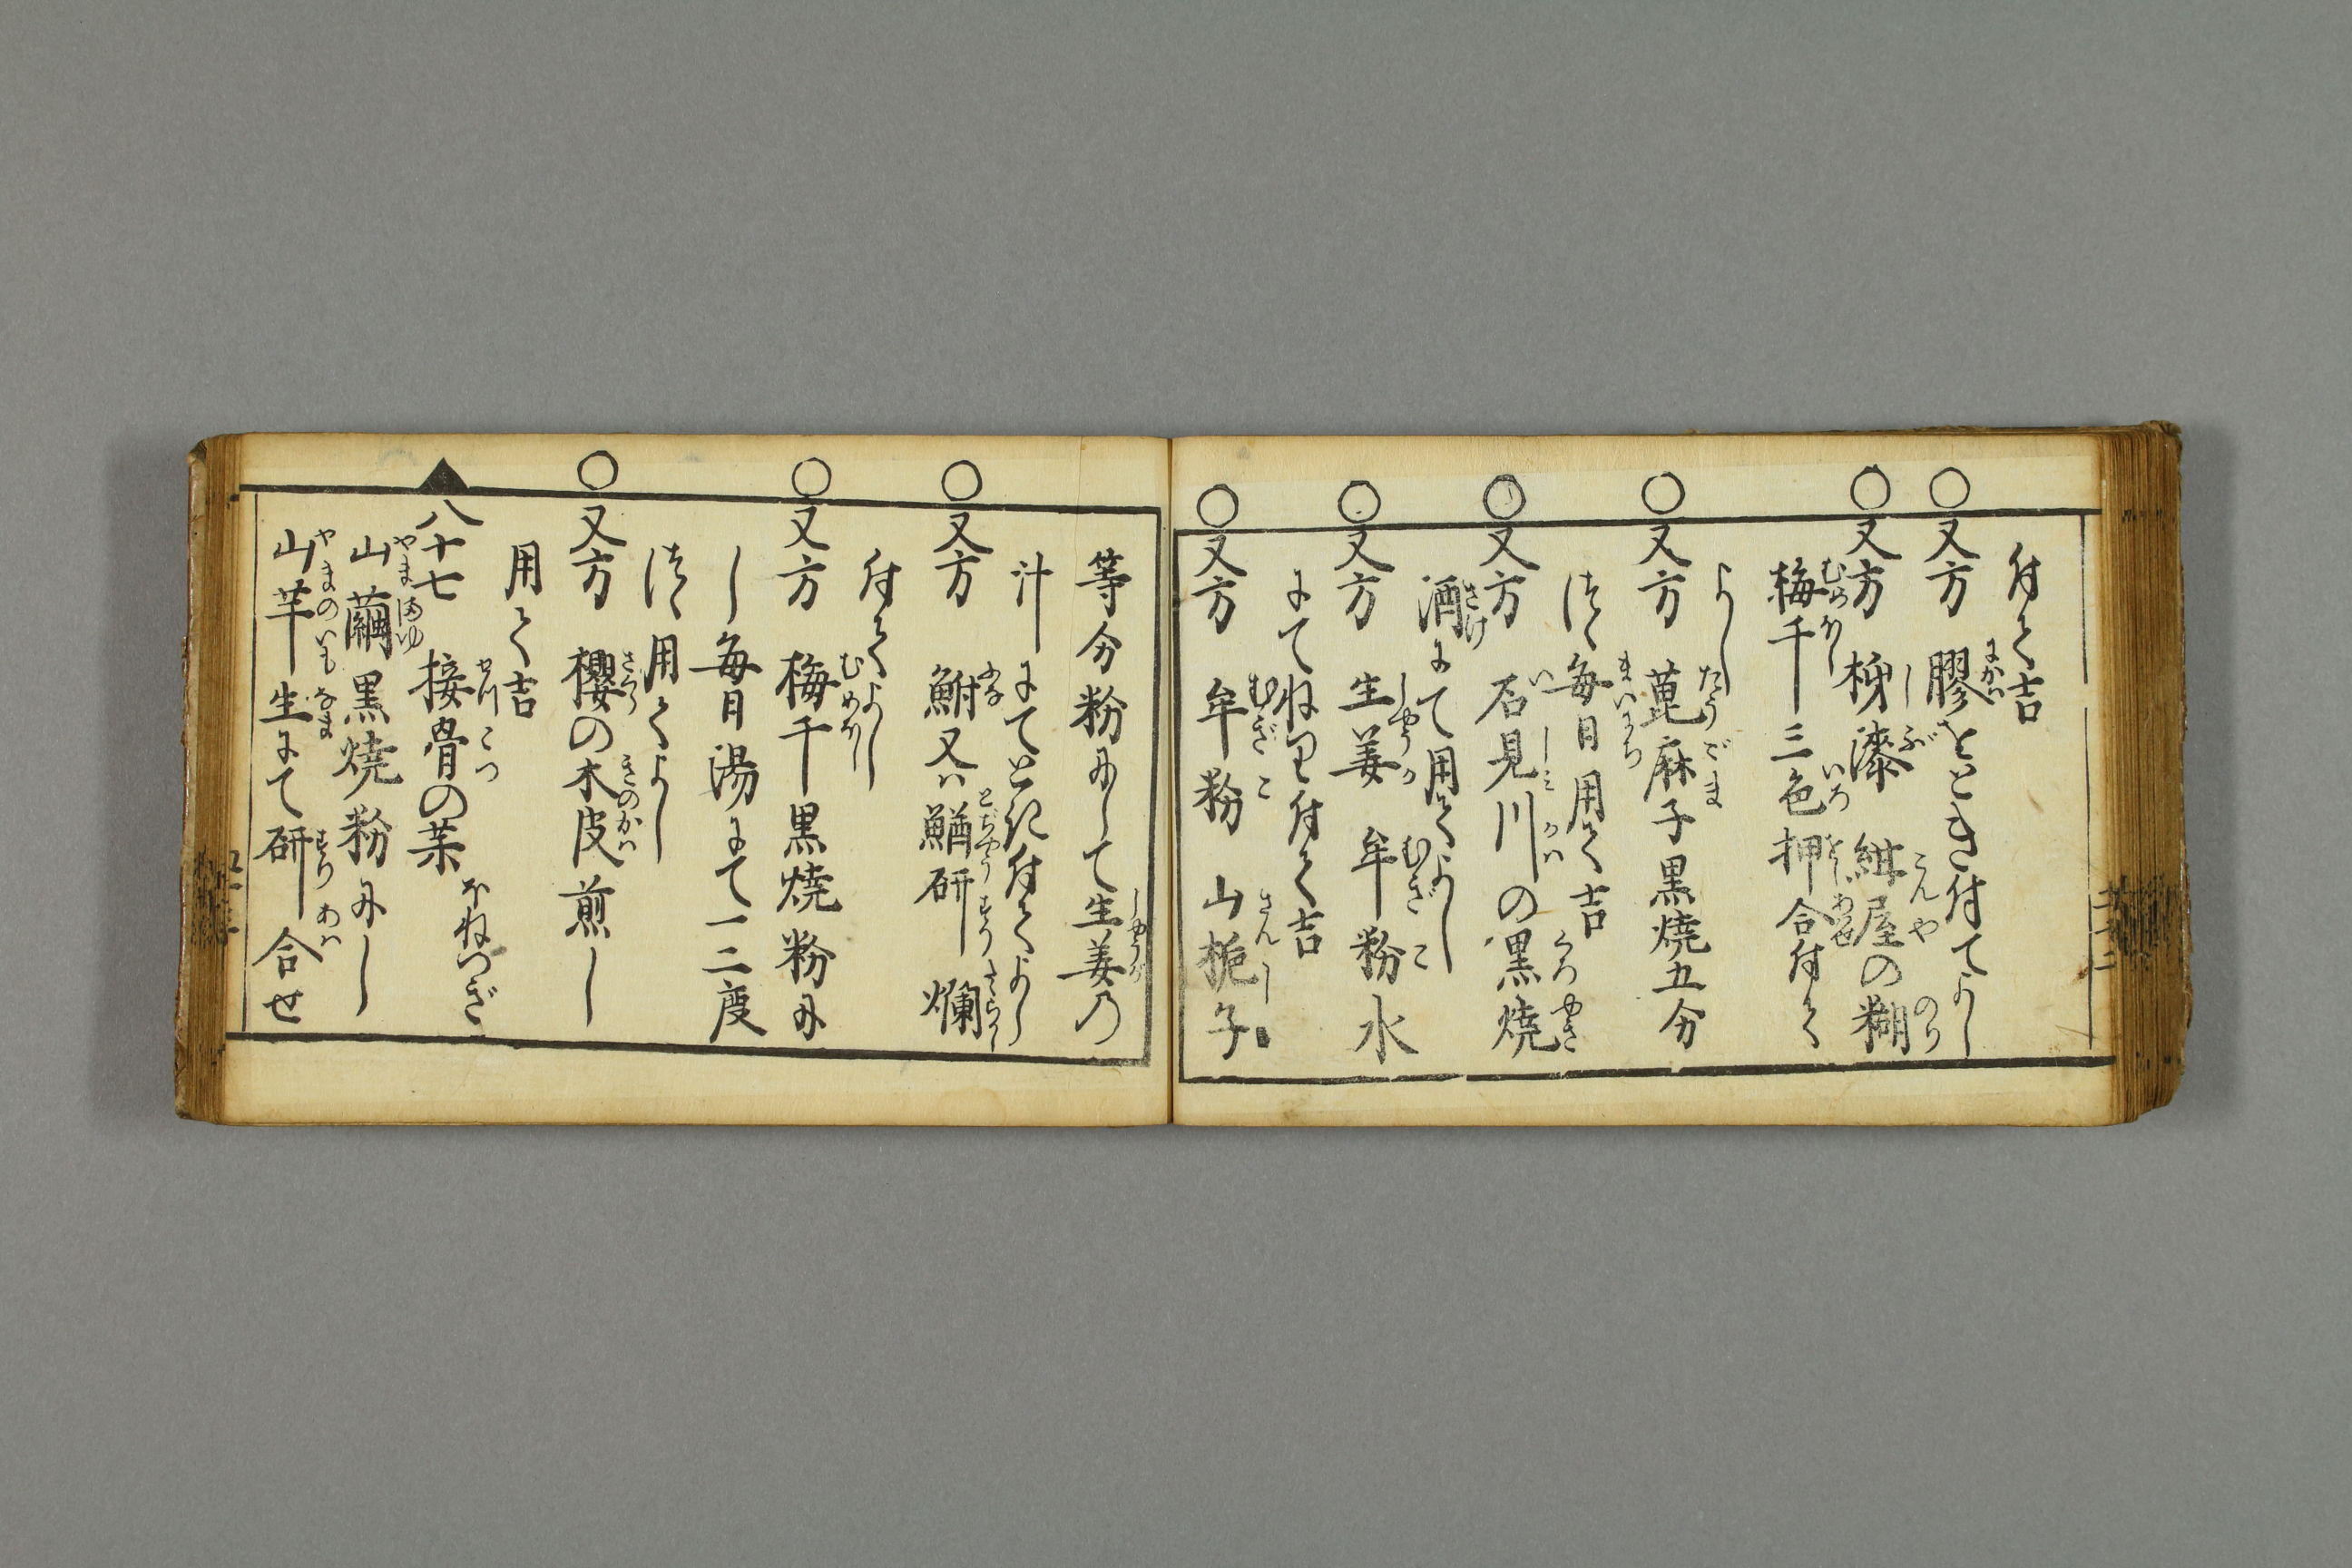 付て吉
○又方 膠をとき付てよし
○又方 柹漆 紺屋の糊
梅干三色押合付て
よし
○又方 萞麻子黒焼五分
づゝ毎日用て吉
○又方 石見川の黒焼
酒にて用てよし
○又方 生姜 牟粉水
にてねり付て吉
○又方 牟粉 山梔子
等分粉にして生姜の
汁にてとき付てよし
○又方 鮒又ハ鰌研爛
付てよし
○又方 梅干黒焼粉に
し毎日湯にて一二度
づゝ用てよし
○又方 櫻の木皮煎し
用て吉
▲八十七 接骨の薬 ほねつぎ
山繭黒焼粉にし
山芋生にて研合せ